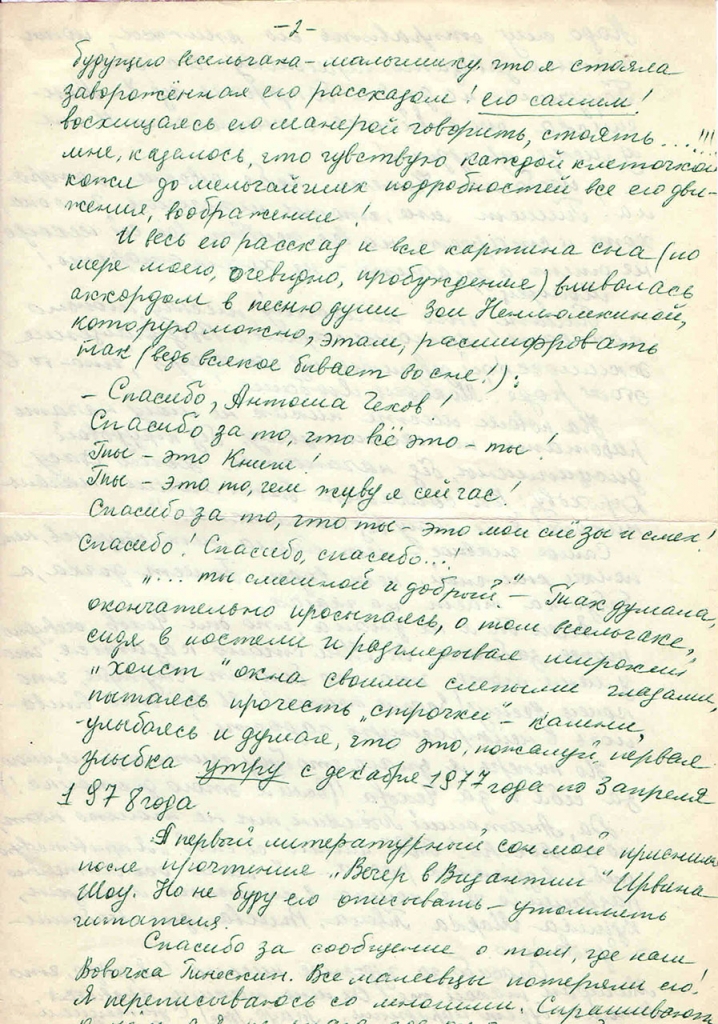 -2-
будущего весельчака-мальчишку, что я стояла
заворожённая его рассказом! его самим!
восхищаясь его манерой говорить, стоять....!!!
мне, казалось, что чувствую каждой клеточкой
кожи до мельчайших подробностей все его дви-
жения, воображение!
И весь его рассказ и вся картина сна (по
мере моего, очевидно, пробуждения) вливалась
аккордом в песню души Зои
которую можно, этам, расшифровать
так (ведь всякое бывает во сне!):
- Спасибо, Антоша Чехов!
Спасибо за то, что всё это - ты!
Ты - это Книги!
Ты - это то, чем живу я сейчас!
Спасибо за то, что ты - это мои слёзы и смех!
Спасибо! Спасибо, спасибо...!
"... ты смешной и добрый?" - Так думала,
окончательно просыпаясь, о том весельчаке,
сидя в постели и разглядывая широкий
"холст" окна своими слепыми глазами,
пытаясь прочесть "строчки" - камни,
улыбаясь и думая, что это, пожалуй, первая
улыбка утру с декабря 1977 года по 3 апреля
1978 года
А первый литературный сон мой приснился
после прочтения "Вечер в Византии" Ирвина
Шоу. Но не буду его описывать - утомлять
читателя.
Спасибо за сообщение о том, где наш
Вовочка Все малеевцы потеряли его!
Я переписываюсь со многими. Спрашивают